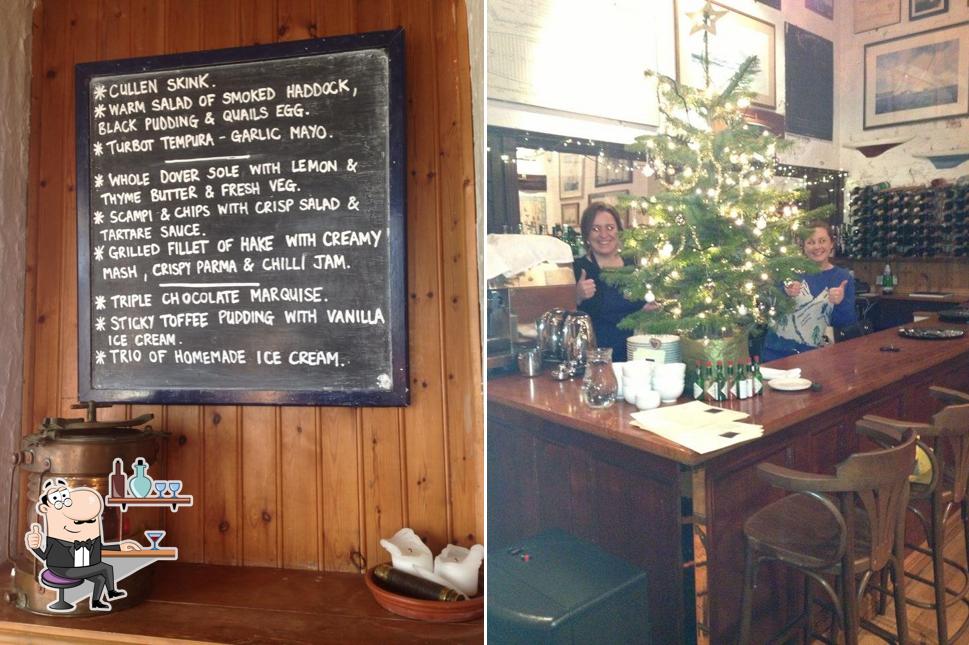 * CULLEN SKINK.
* WARM SALAD OF SMOKED HADDOCK,
BLACK PUDDING & QUAILS EGG.
* TURBOT TEMPURA - GARLIC MAYO.
* WHOLE DOVER SOLE WITH LEMON &
THYME BUTTER & FRESH VEG.
* SCAMPI & CHIPS WITH CRISP SALAD &
TARTARE SAUCE.
* GRILLED FILLET OF HAKE WITH CREAMY
MASH, CRISPY PARMA & CHILLI JAM.
* TRIPLE CHOCOLATE MARQUISE.
* STICKY TOFFEE PUDDING WITH VANILLA
ICE CREAM.
* TRIO OF HOMEMADE ICE CREAM.